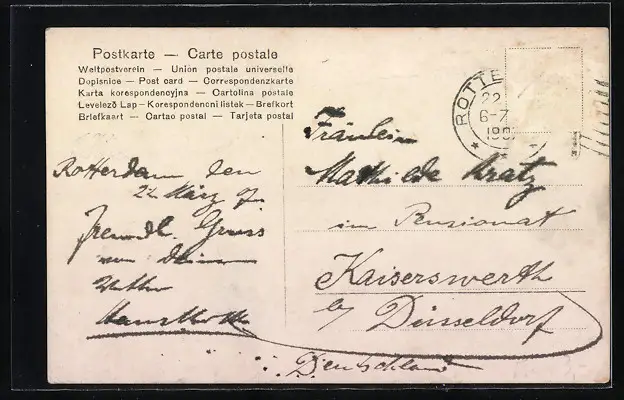 Postkarte — Carte postale
Weltpostverein — Union postale universelle
Dopisnice — Post card — Correspondenzkarte
Karta korespondencyjna — Cartolina postale
Levelező Lap — Korespondencni listek — Brefkort
Briefkaart — Cartao postal — Tarjeta postal
ROTTE
22
6-7
190
Rotterdam den
22 März 07
Freundl. Gruss
von Deinem
Vetter
Fräulein
Mathilde Kratz
im Pensionat
Kaiserswerth
b/ Düsseldorf
Deutschland